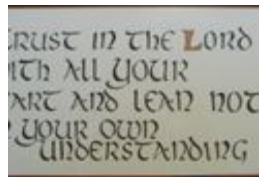 RUST IN THE LORD
ITH ALL YOUR
ART AND LEAN NOT
YOUR OWN
UNDERSTANDING